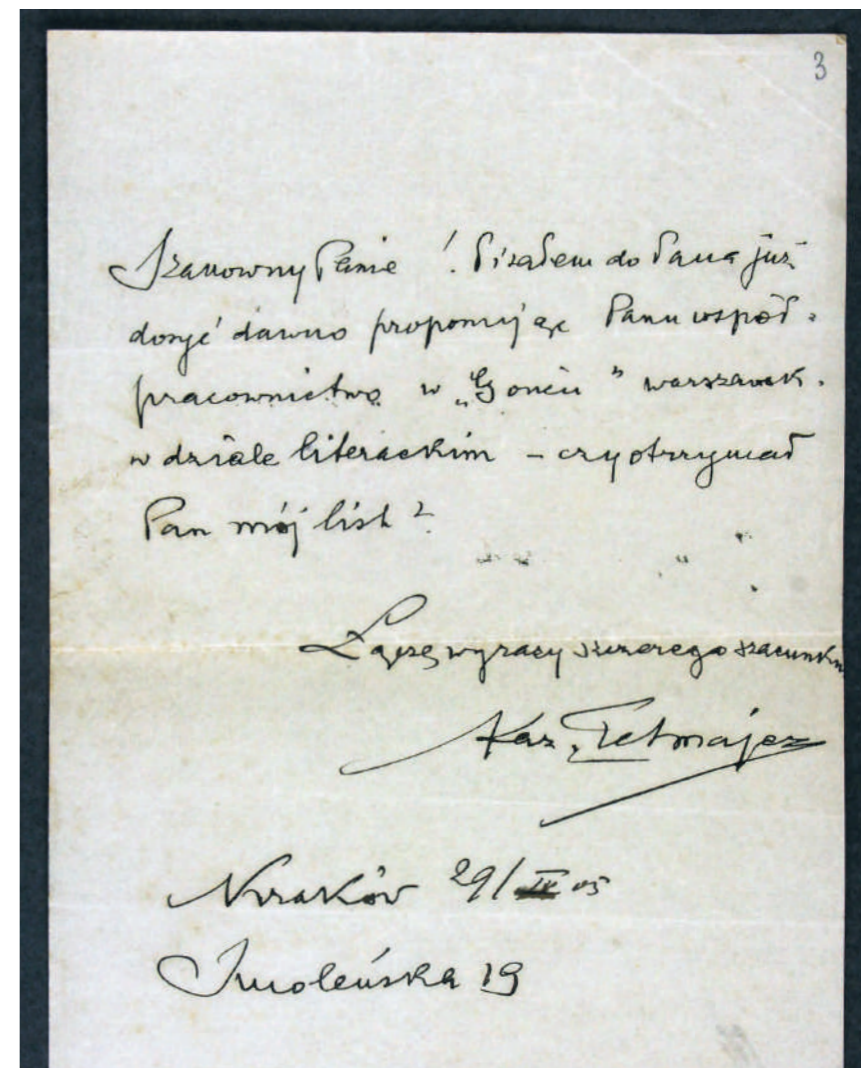 3
Szanowny Panie! Pisałem do Pana już
dosyć dawno proponując Panu współ=
pracownictwo w „Gońcu” warszawsk.
w dziale literackim – czy otrzymał
Pan mój list?
Łączę wyrazy szczerego szacunku
Kaz. Tetmajer
Kraków 29/IV 05
Smoleńska 19